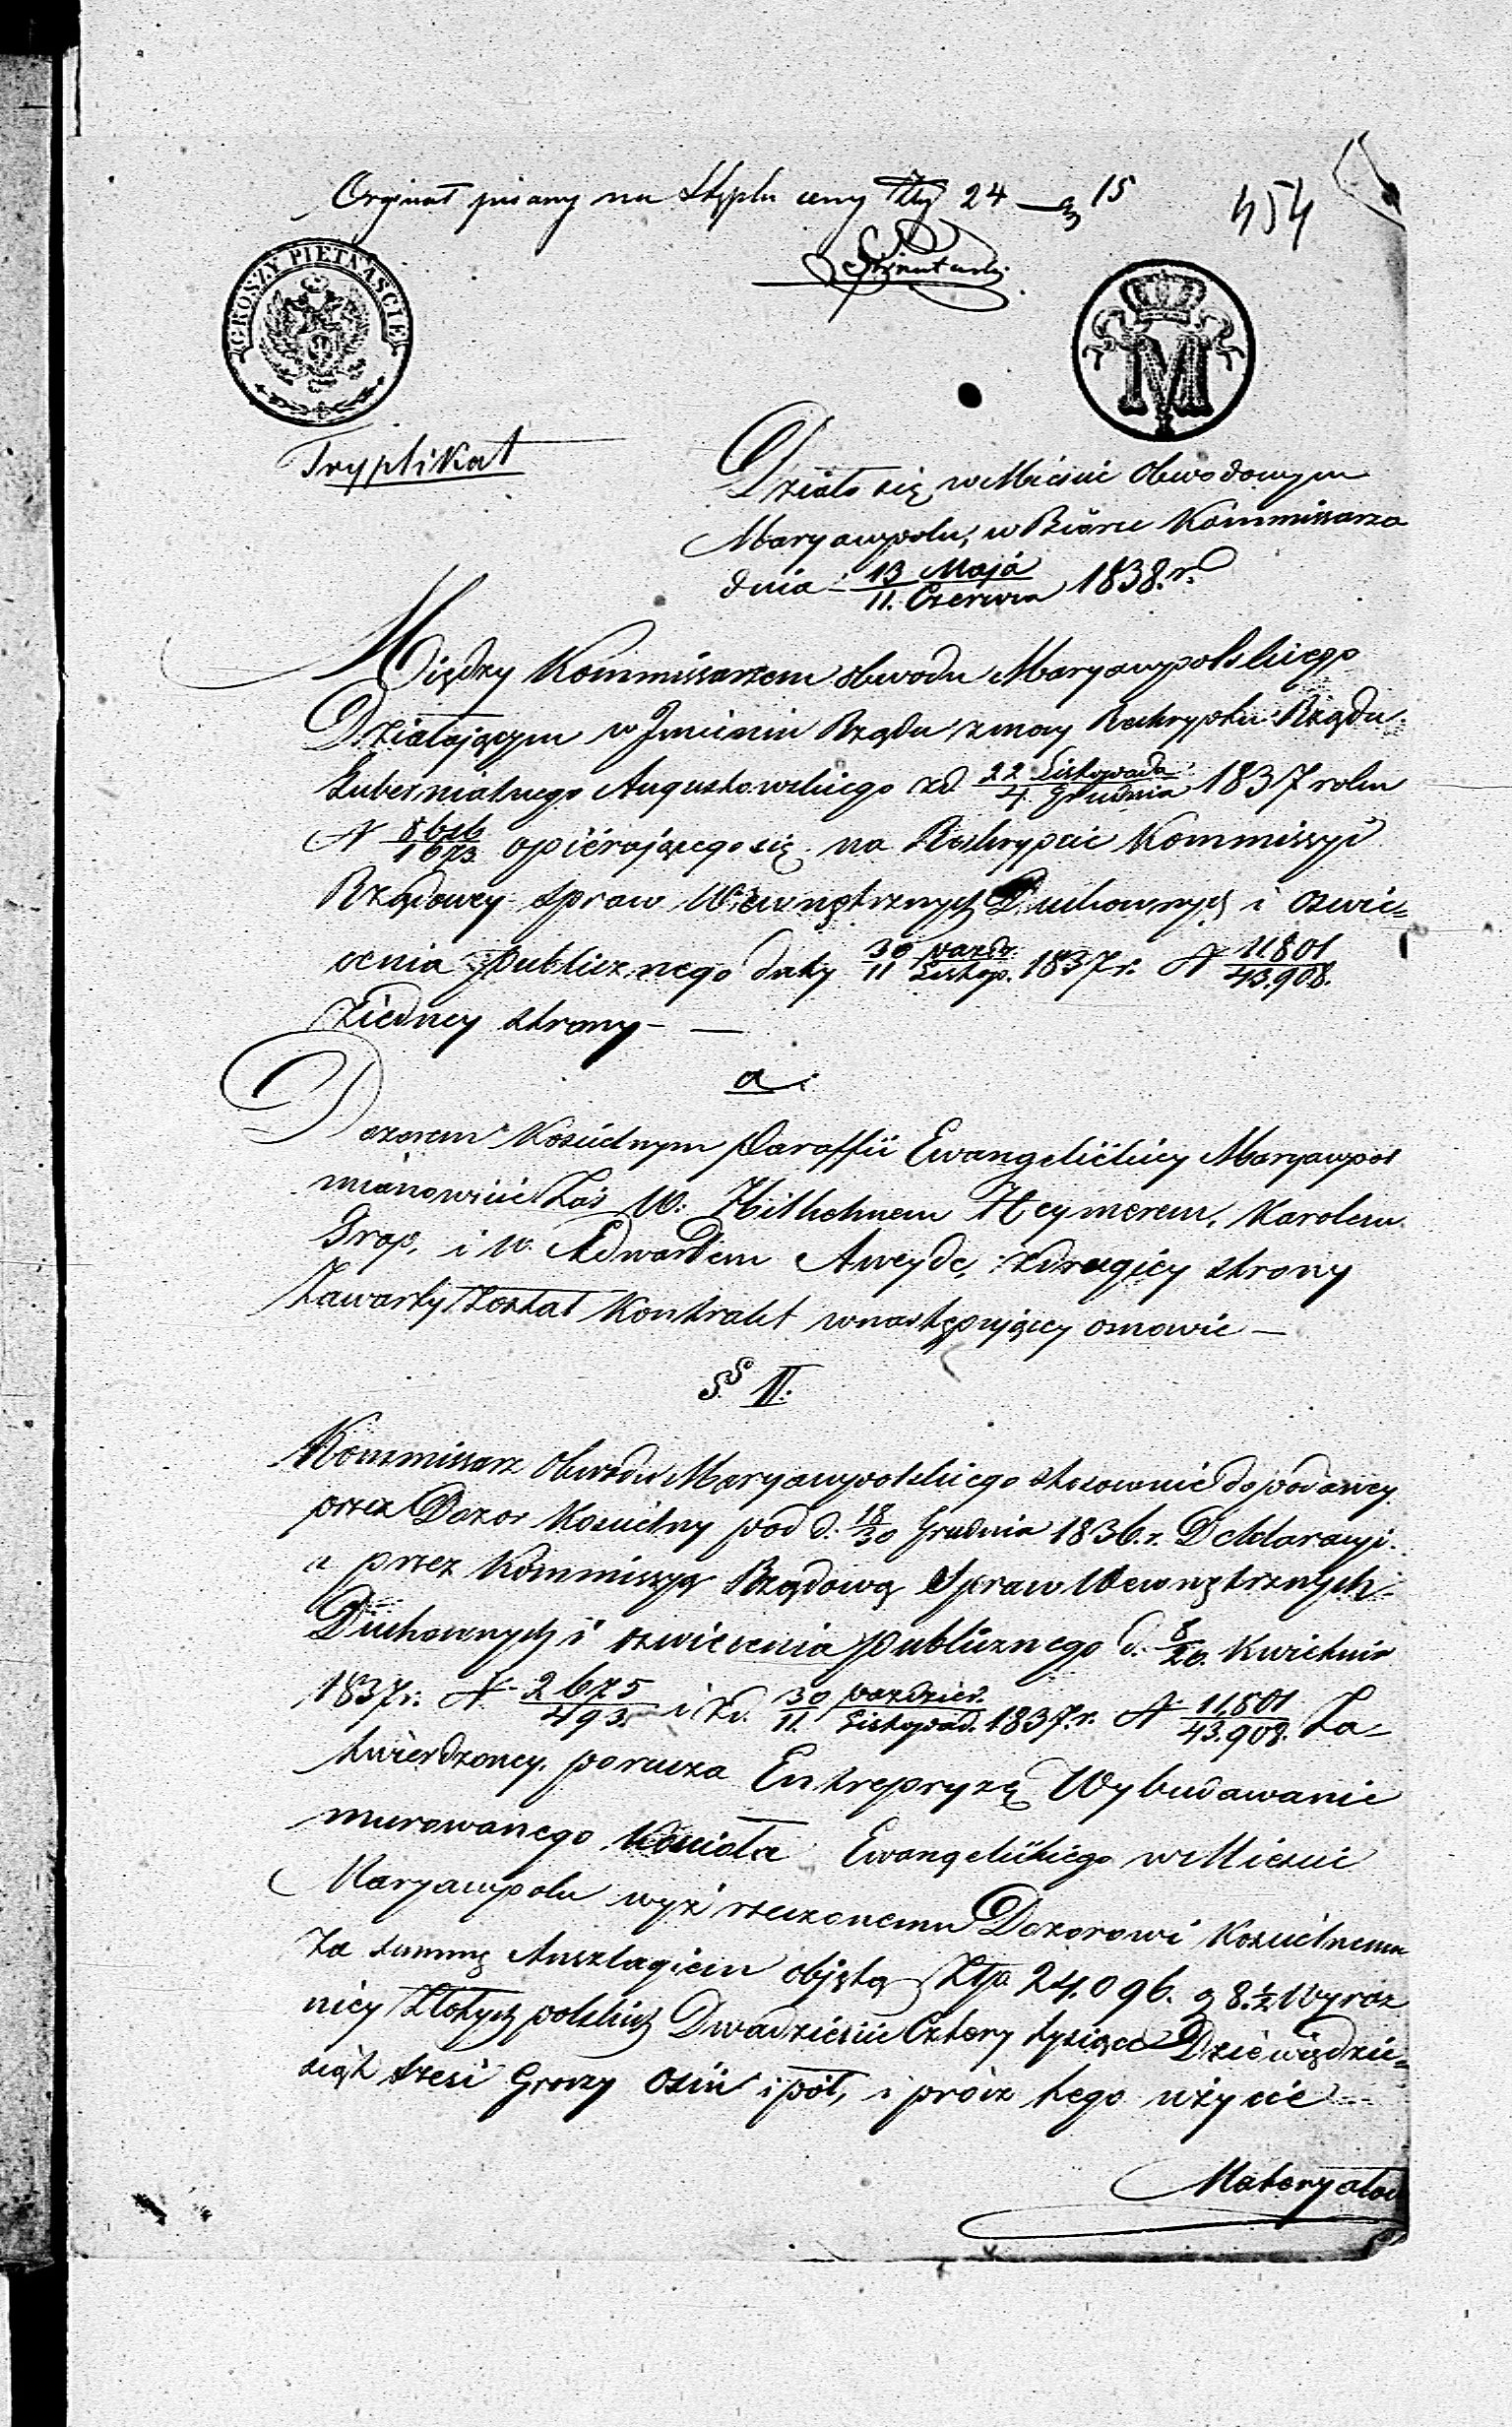 Orginał pisany na Stęplu ceny Złp 24 gr 15
454
GROSZY PIETNAŚCIE
M
Tryplikat
Działo się w Mieście Obwodowym
Maryampolu, w Biórze Kommissarza
dnia 13 Maja / 11. Czerwca 1838. r.
Między Kommissarzem Obwodu Maryampolskiego
Działającym w Jmieniu Rządu z mocy Reskryptu Rządu
Gubernialnego Augustowskiego z d. 22 Listopada / 4 Grudnia 1837 roku
N opiérającego się na Reskrypcie Kommissyi
Rządowey Spraw Wewnętrznych Duchownych i Oswie=
cenia publicznego daty 30 pazdz. / 11 Listop. 1837 r. N 11.801 / 43.908.
z iedney strony —
a:
Dozorem Kościelnym Paraffii Ewangelickiey Maryampol
mianowicie Zaś W: Wilhelmem Heymerem, Karolem
Grap, i W. Edwardem Aweyde, z drugiey strony
Zawarty Został Kontrakt w następuiącey osnowie —
§ II.
Kommissarz Obwodu Maryampolskiego stosownie do podaney
przez Dozor Kościelny pod d. 18/30 Grudnia 1836. r. Deklaracyi
a przez Kommissyą Rządową Spraw Wewnętrznych
Duchownych i oswiecenia publicznego d. 8/20. Kwietnia
1837 r. N 2675 / 493. i z d. 30 pazdzier. / 11. Listopad. 1837. r. N 11,801 / 43.908. Za=
twierdzoney, porucza Entrepryzę Wybudowanie
murowanego Kościoła Ewangelickiego w Mieście
Maryampolu wyż rzeczonemu Dozorowi Kościelnemu
Za summę Anszlagiem objętą Złp. 24,096. g 8. ½ Wyraz
niey Złotych polskich Dwadzieście Cztery tysiące Dziewiędzie=
siąt sześć Groszy Osim i pół, i prócz tego użycie
Materyałow